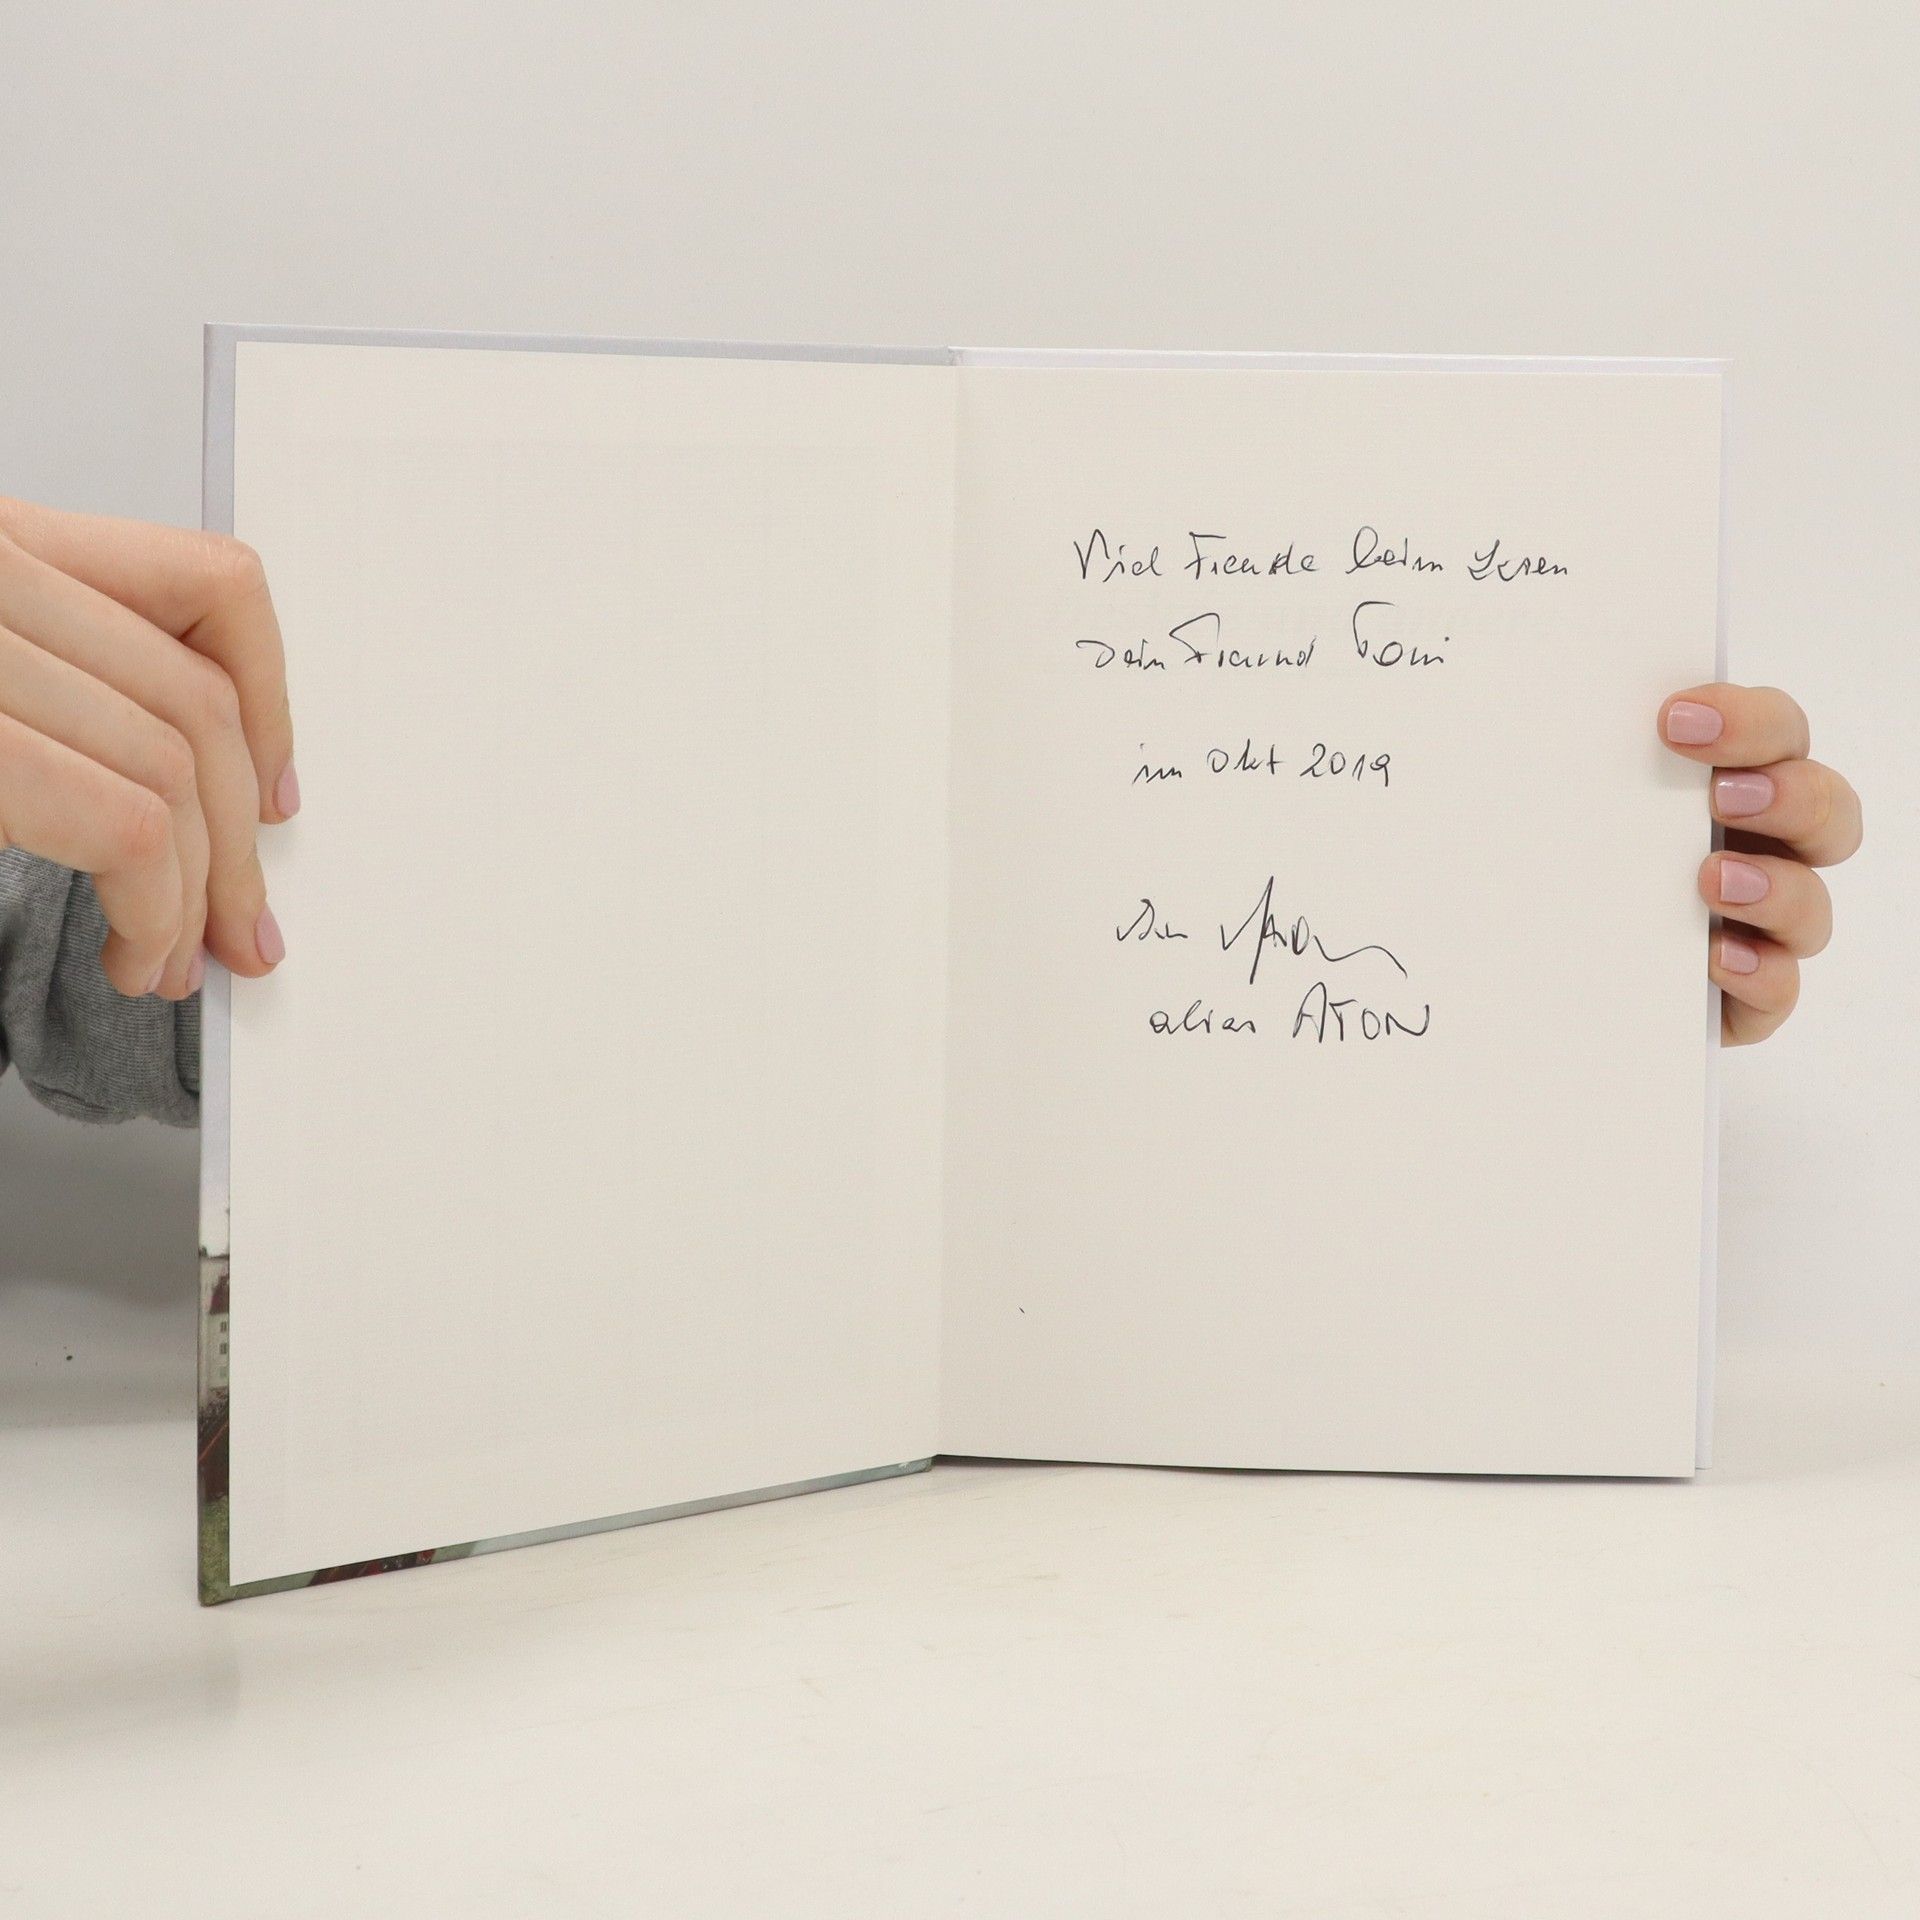 Viel Freude beim Lesen
Dein Freund Toni
im Okt 2019
alias ATON